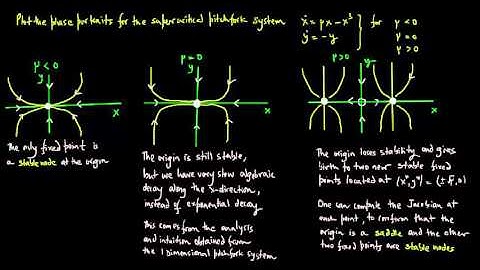 Plot the phase portraits for the supercritical pitchfork system
ẋ = μx - x³
ẏ = -y
for
μ < 0
μ = 0
μ > 0
μ < 0
y
x
The only fixed point is
a stable node at the origin
μ = 0
y
x
The origin is still stable,
but we have very slow algebraic
decay along the x-direction,
instead of exponential decay
This comes from the analysis
and intuition obtained from
the 1 dimensional pitchfork system
μ > 0
y
x
The origin loses stability and gives
birth to two new stable fixed
points located at (x*, y*) = (±√μ, 0)
One can compute the Jacobian at
each point, to confirm that the
origin is a saddle and the other
two fixed points are stable nodes